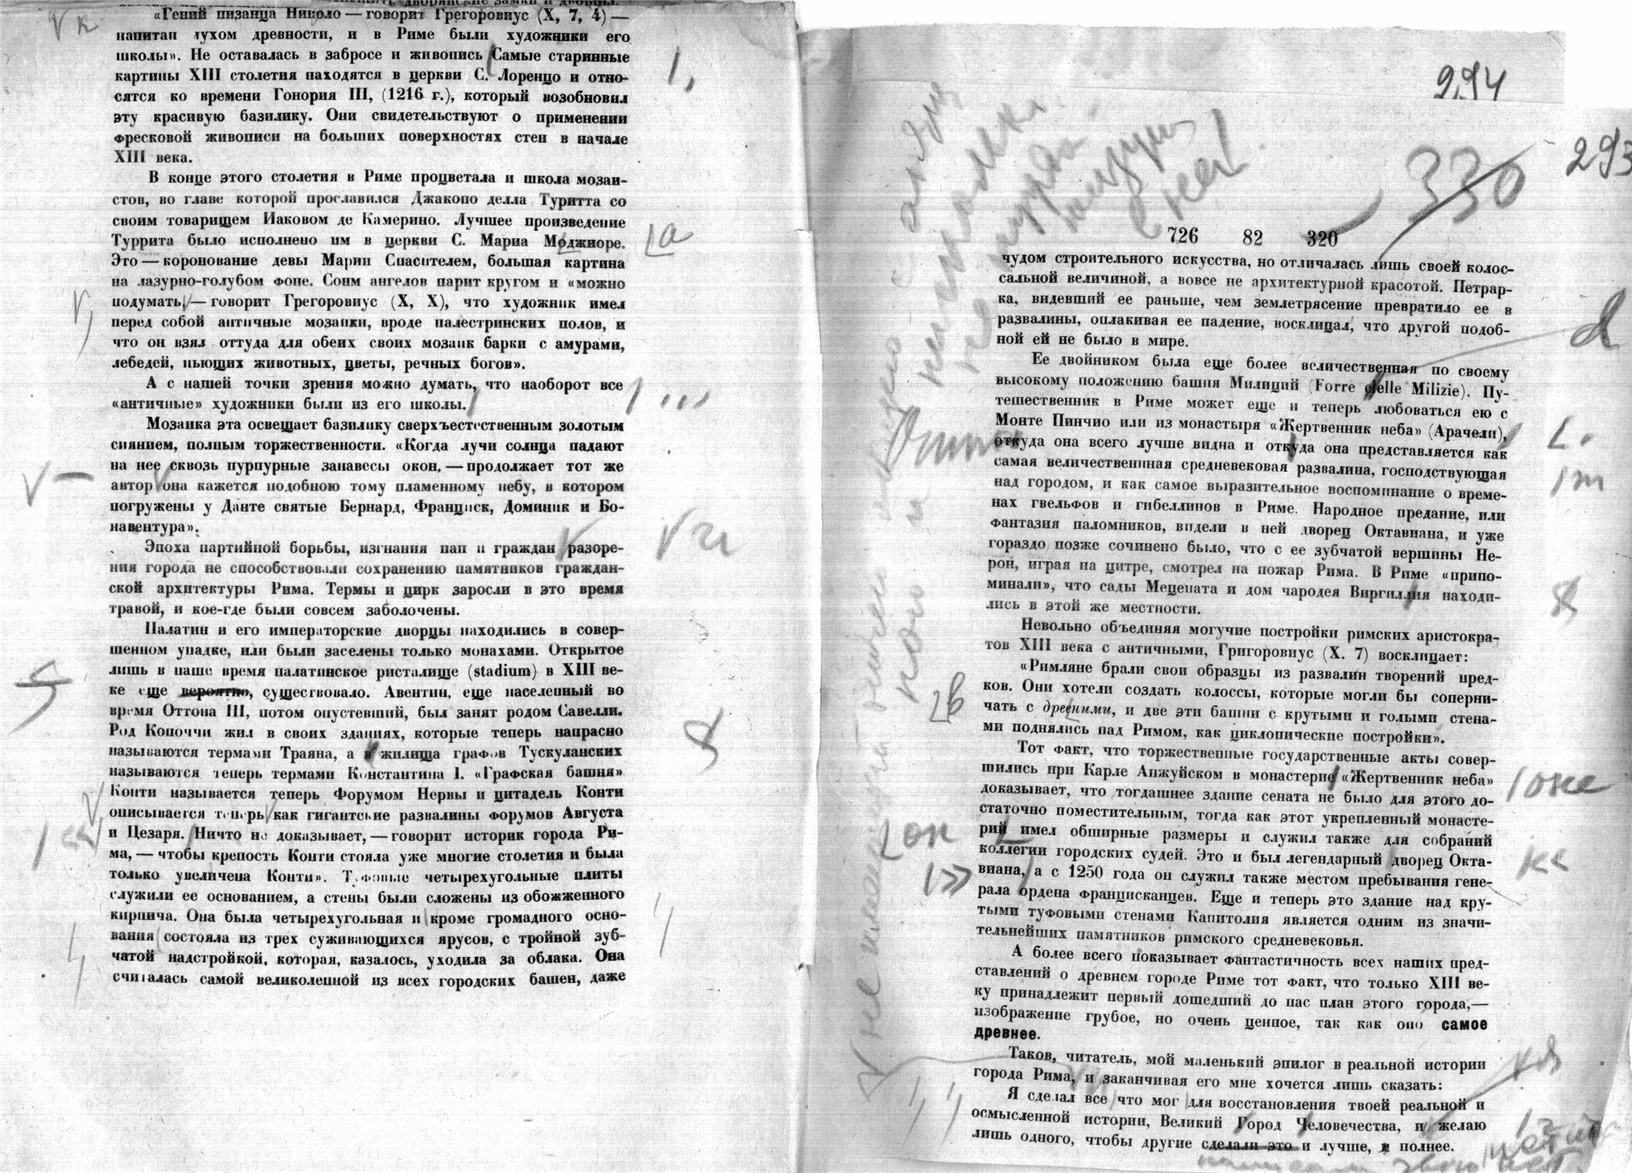 «Гений пизанца Николо — говорит Грегоровиус (X, 7, 4) —
напитан духом древности, и в Риме были художники его
школы». Не оставалась в забросе и живопись Самые старинные
картины XIII столетия находятся в церкви С. Лоренцо и отно-
сятся ко времени Гонория III, (1216 г.), который возобновил
эту красивую базилику. Они свидетельствуют о применении
фресковой живописи на больших поверхностях стен в начале
XIII века.
В конце этого столетия в Риме процветала и школа мозаи-
стов, во главе которой прославился Джакопо делла Туритта со
своим товарищем Иаковом де Камерино. Лучшее произведение
Туррита было исполнено им в церкви С. Мариа Моджиоре.
Это — коронование девы Марии Спасителем, большая картина
на лазурно-голубом фоне. Сонм ангелов парит кругом и «можно
подумать, — говорит Грегоровиус (X, X), что художник имел
перед собой античные мозаики, вроде палестринских полов, и
что он взял оттуда для обеих своих мозаик барки с амурами,
лебедей, пьющих животных, цветы, речных богов».
А с нашей точки зрения можно думать, что наоборот все
«античные» художники были из его школы.
Мозаика эта освещает базилику сверхъестественным золотым
сиянием, полным торжественности. «Когда лучи солнца падают
на нее сквозь пурпурные занавесы окон, — продолжает тот же
автор она кажется подобною тому пламенному небу, в котором
погружены у Данте святые Бернард, Франциск, Доминик и Бо-
навентура».
Эпоха партийной борьбы, изгнания пап и граждан разоре-
ния города не способствовали сохранению памятников граждан-
ской архитектуры Рима. Термы и цирк заросли в это время
травой, и кое-где были совсем заболочены.
Палатин и его императорские дворцы находились в совер-
шенном упадке, или были заселены только монахами. Открытое
лишь в наше время палатинское ристалище (stadium) в XIII ве-
ке еще вероятно, существовало. Авентин, еще населенный во
время Оттона III, потом опустевший, был занят родом Савелли.
Род Копоччи жил в своих зданиях, которые теперь напрасно
называются термами Траяна, а жилища графов Тускуланских
называются теперь термами Константина I. «Графская башня»
Конти называется теперь Форумом Нервы и цитадель Конти
описывается теперь как гигантские развалины форумов Августа
и Цезаря. Ничто не доказывает, — говорит историк города Ри-
ма, — чтобы крепость Конти стояла уже многие столетия и была
только увеличена Конти». Туфовые четырехугольные плиты
служили ее основанием, а стены были сложены из обожженного
кирпича. Она была четырехугольная и кроме громадного осно-
вания состояла из трех суживающихся ярусов, с тройной зуб-
чатой надстройкой, которая, казалось, уходила за облака. Она
считалась самой великолепной из всех городских башен, даже
294
293
330
726 82 320
чудом строительного искусства, но отличалась лишь своей колос-
сальной величиной, а вовсе не архитектурной красотой. Петрар-
ка, видевший ее раньше, чем землетрясение превратило ее в
развалины, оплакивая ее падение, восклицал, что другой подоб-
ной ей не было в мире.
Ее двойником была еще более величественная по своему
высокому положению башня Милиций (Forre delle Milizie). Пу-
тешественник в Риме может еще и теперь любоваться ею с
Монте Пинчио или из монастыря «Жертвенник неба» (Арачели),
откуда она всего лучше видна и откуда она представляется как
самая величественная средневековая развалина, господствующая
над городом, и как самое выразительное воспоминание о време-
нах гвельфов и гибеллинов в Риме. Народное предание, или
фантазия паломников, видели в ней дворец Октавиана, и уже
гораздо позже сочинено было, что с ее зубчатой вершины Не-
рон, играя на цитре, смотрел на пожар Рима. В Риме «припо-
минали», что сады Мецената и дом чародея Виргилия находи-
лись в этой же местности.
Невольно объединяя могучие постройки римских аристокра-
тов XIII века с античными, Григоровиус (X. 7) восклицает:
«Римляне брали свои образцы из развалин творений пред-
ков. Они хотели создать колоссы, которые могли бы соперни-
чать с древними, и две эти башни с крутыми и голыми стена-
ми поднялись над Римом, как циклопические постройки».
Тот факт, что торжественные государственные акты совер-
шились при Карле Анжуйском в монастерие «Жертвенник неба»
доказывает, что тогдашнее здание сената не было для этого до-
статочно поместительным, тогда как этот укрепленный монасте-
рий имел обширные размеры и служил также для собраний
коллегии городских судей. Это и был легендарный дворец Окта-
виана, а с 1250 года он служил также местом пребывания гене-
рала ордена Францисканцев. Еще и теперь это здание над кру-
тыми туфовыми стенами Капитолия является одним из значи-
тельнейших памятников римского средневековья.
А более всего показывает фантастичность всех наших пред-
ставлений о древнем городе Риме тот факт, что только XIII ве-
ку принадлежит первый дошедший до нас план этого города,—
изображение грубое, но очень ценное, так как оно самое
древнее.
Таков, читатель, мой маленький эпилог в реальной истории
города Рима, и заканчивая его мне хочется лишь сказать:
Я сделал все что мог для восстановления твоей реальной и
осмысленной истории, Великий Город Человечества, и желаю
лишь одного, чтобы другие сделали это и лучше, и полнее.